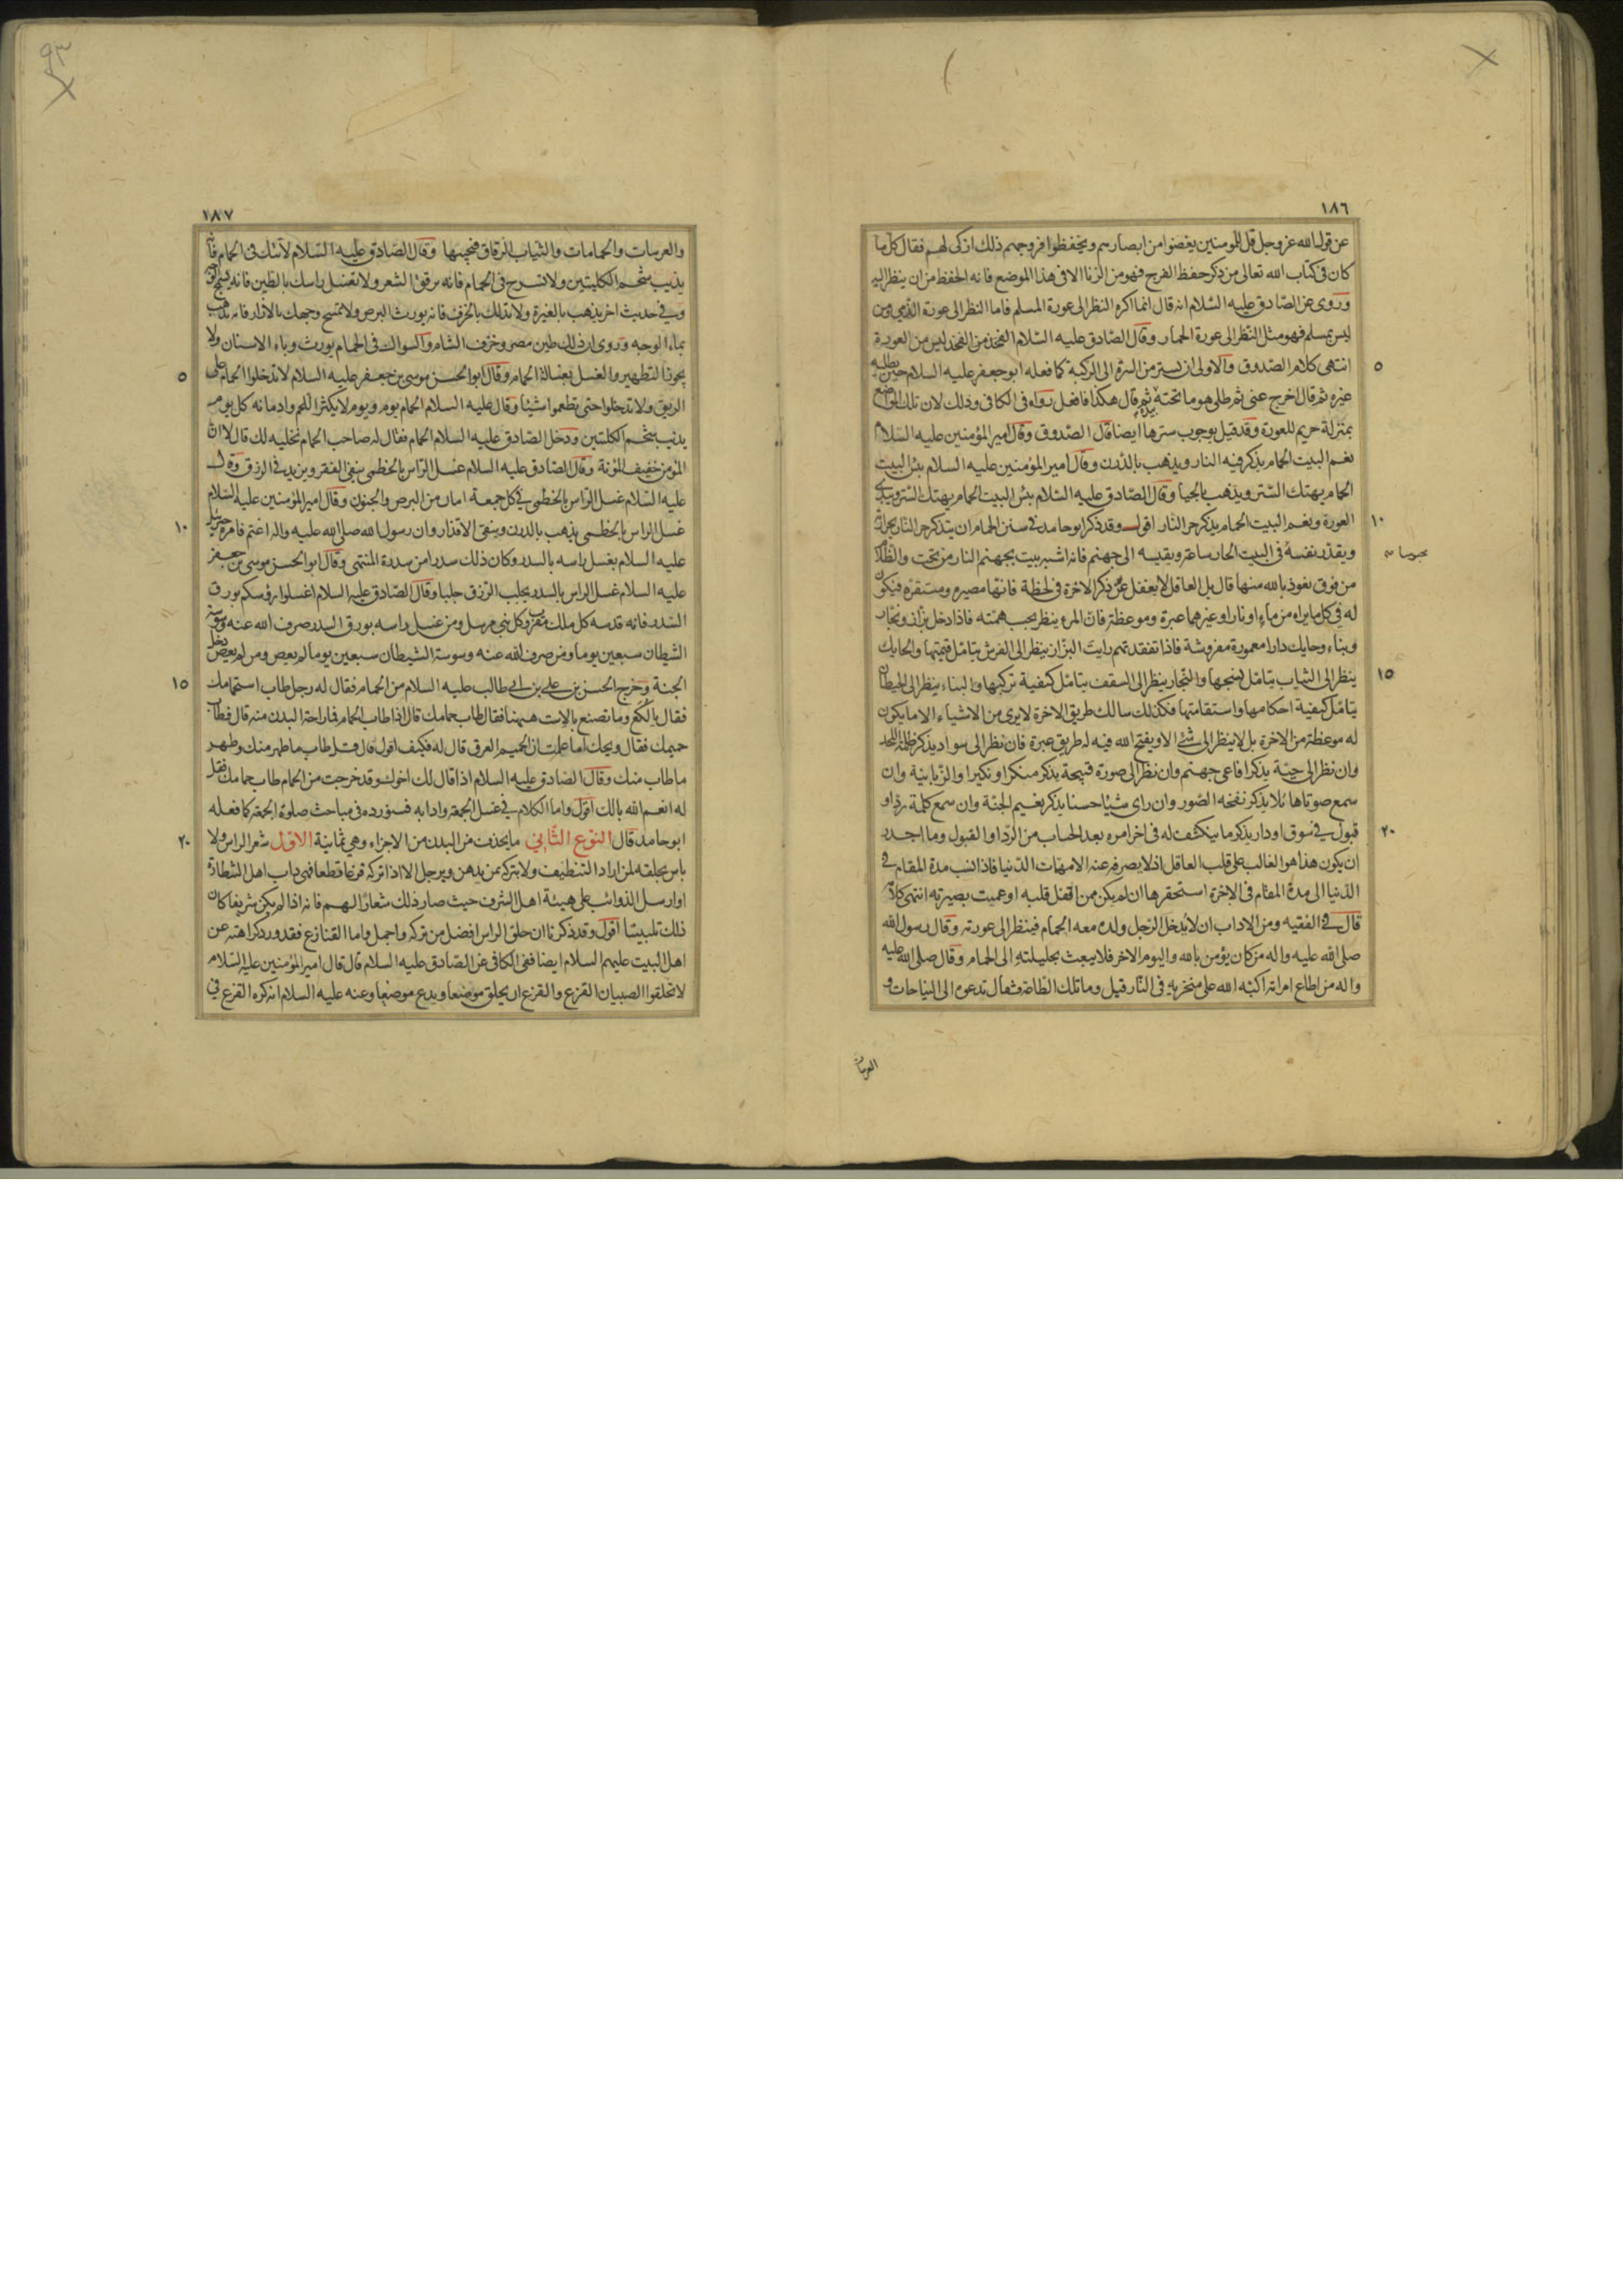 ١٨٦
عن قول الله عز وجل قل للمومنين يغضوا من ابصارهم ويحفظوا فروجهم ذلك ازكى لهم فقال كل ما
كان فى كتاب الله تعالى من ذكر حفظ الفرج فهو من الزنا الا فى هذا الموضع فانه الحفظ من ان ينظر اليه
وروى عن الصادق عليه السلام انه قال انما اكره النظر الى عورة المسلم فاما النظر الى عورة الذمى ومن
ليس بمسلم فهو مثل النظر الى عورة الحمار وقال الصادق عليه السلام الفخذ من الفخذ ليس من العورة
٥
انتهى كلام الصدوق والاولى ان يستر من السرة الى الركبة كما فعله ابو جعفر عليه السلام حين يطليه
غيره ثم قال اخرج عنى ثم طلى هو ما تحته بيده ثم قال هكذا فافعل رواه فى الكافى وذلك لان تلك المواضع
بمنزلة حريم للعورة وقد قيل بوجوب سترها ايضا قال الصدوق وقال امير المؤمنين عليه السلام
نعم البيت الحمام يذكر فيه النار ويذهب بالدرن وقال امير المؤمنين عليه السلام بئس البيت
الحمام يهتك الستر ويذهب بالحيا وقال الصادق عليه السلام بئس البيت الحمام يهتك الستر ويبدى
١٠
العورة ونعم البيت الحمام يذكر حر النار اقول وقد ذكر ابو حامد فى سنن الحمام ان يتذكر حر النار بحرارته
ويقدر نفسه فى البيت الحار ساعة ويقيسه الى جهنم فانه اشبه بيت بجهنم النار من تحت والظلام
من فوق نعوذ بالله منها قال بل العاقل لا يغفل عن ذكر الاخرة فى لحظة فانها مصيره ومستقره فيكون
له فى كل ما يراه من ماء او نار او غيرهما عبرة وموعظة فان المرء ينظر بحسب همته فاذا دخل بزاز ونجار
وبناء وحايك دارا معمورة مفروشة فاذا تفقدتهم رايت البزاز ينظر الى الفرش يتامل قيمتها والحايك
١٥
ينظر الى الثياب يتامل نسجها والنجار ينظر الى السقف يتامل كيفية تركيبها والبناء ينظر الى الحيطان
يتامل كيفية احكامها واستقامتها فكذلك سالك طريق الاخرة لا يرى من الاشياء الا ما يكون
له موعظة من الاخرة بل لا ينظر الى شئ الا ويفتح الله فيه له طريق عبرة فان نظر الى سواد يذكر ظلمة اللحد
وان نظر الى حية يذكر افاعى جهنم وان نظر الى صورة قبيحة يذكر منكرا ونكيرا والزبانية وان
سمع صوتا هائلا يذكر نفخة الصور وان راى شيئا حسنا يذكر نعيم الجنة وان سمع كلمة رد او
٢٠
قبول فى سوق او دار يذكر ما ينكشف له فى اخر امره بعد الحساب من الرد او القبول وما اجدر
ان يكون هذا هو الغالب على قلب العاقل اذ لا يصرفه عنه الا مهمات الدنيا فاذا نسب مدة المقام فى
الدنيا الى مدة المقام فى الاخرة استحقرها ان لم يكن ممن اقفل قلبه او عميت بصيرته انتهى كلامه
قال فى الفقيه ومن الاداب ان لا يدخل الرجل ولده معه الحمام فينظر الى عورته وقال رسول الله
صلى الله عليه واله من كان يؤمن بالله واليوم الاخر فلا يبعث بحليلته الى الحمام وقال صلى الله عليه
واله من اطاع امراته اكبه الله على منخريه فى النار قيل وما تلك الطاعة فقال تدعوه الى النياحات و
العرسات
١٨٧
والعرسات والحمامات والثياب الرقاق فيجيبها وقال الصادق عليه السلام لا تتك فى الحمام فانه
يذيب شحم الكليتين ولا تسرح فى الحمام فانه يرقق الشعر ولا تغسل راسك بالطين فانه يسمج الوجه
وفى حديث اخر يذهب بالغيرة ولا تدلك بالخزف فانه يورث البرص ولا تمسح وجهك بالازار فانه يذهب
بماء الوجه وروى ان ذلك طين مصر وخزف الشام والسواك فى الحمام يورث وباء الاسنان ولا
٥
يجوز التطهير والغسل بغسالة الحمام وقال ابو الحسن موسى بن جعفر عليه السلام لا تدخلوا الحمام على
الريق ولا تدخلوا حتى تطعموا شيئا وقال عليه السلام الحمام يوم ويوم لا يكثر اللحم وادمانه كل يوم
يذيب شحم الكليتين ودخل الصادق عليه السلام الحمام فقال له صاحب الحمام نخليه لك قال لا ان
المؤمن خفيف المؤنة وقال الصادق عليه السلام غسل الراس بالخطمى ينفى الفقر ويزيد فى الرزق وقال
عليه السلام غسل الراس بالخطمى فى كل جمعة امان من البرص والجنون وقال امير المؤمنين عليه السلام
١٠
غسل الراس بالخطمى يذهب بالدرن وينقى الاقذار وان رسول الله صلى الله عليه واله اغتم فامره جبرئيل
عليه السلام بغسل راسه بالسدر وكان ذلك سدرا من سدرة المنتهى وقال ابو الحسن موسى بن جعفر
عليه السلام غسل الراس بالسدر يجلب الرزق جلبا وقال الصادق عليه السلام اغسلوا رؤسكم بورق
السدر فانه قدسه كل ملك مقرب وكل نبى مرسل ومن غسل راسه بورق السدر صرف الله عنه وسوسة
الشيطان سبعين يوما ومن صرف الله عنه وسوسة الشيطان سبعين يوما لم يعص ومن لم يعص دخل
١٥
الجنة وخرج الحسن بن على بن ابى طالب عليه السلام من الحمام فقال له رجل طاب استحمامك
فقال يا لكع وما تصنع بالاست ههنا فقال طاب حمامك قال اذا طاب الحمام فما راحة البدن منه قال فطاب
حميمك فقال ويحك اما علمت ان الحميم العرق قال له فكيف اقول قال قل طاب ما طهر منك وطهر
ما طاب منك وقال الصادق عليه السلام اذا قال لك اخوك وقد خرجت من الحمام طاب حمامك فقل
له انعم الله بالك اقول واما الكلام فى غسل الجمعة وادابه فسنورده فى مباحث صلوة الجمعة كما فعله
٢٠
ابو حامد قال النوع الثانى ما يحذف من البدن من الاجزاء وهى ثمانية الاول شعر الراس ولا
باس بحلقه لمن اراد التنظيف ولا بتركه لمن يدهن ويرجل الا اذا تركه قزعا قطعا فهى داب اهل الشطارة
او ارسل الذوائب على هيئة اهل الشرف حيث صار ذلك شعارا لهم فانه اذا لم يكن شريفا كان
ذلك تلبيسا اقول وقد ذكرنا ان حلق الراس افضل من تركه واجمل واما القنازع فقد ورد كراهته عن
اهل البيت عليهم السلام ايضا ففى الكافى عن الصادق عليه السلام قال قال امير المؤمنين عليه السلام
لا تحلقوا الصبيان القزع والقزع ان يحلق موضعا ويدع موضعا وعنه عليه السلام انه كره القزع فى